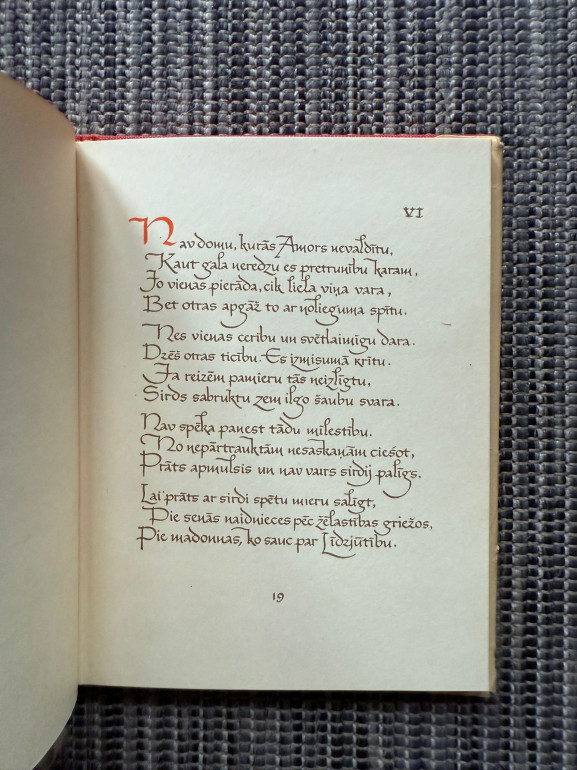 VI
Nav domu, kurās Amors nevaldītu,
Kaut gala neredzu es pretrunību karam,
Jo vienas pierāda, cik liela viņa vara,
Bet otras apgāž to ar nolieguma spītu.
Nes vienas cerību un svētlaimīgu dara.
Dzēš otras ticību. Es izmisumā krītu.
Ja reizēm pamieru tās neizlīgtu,
Sirds sabruktu zem ilgo šaubu svara.
Nav spēka panest tādu mīlestību.
No nepārtrauktām nesaskaņām ciešot,
Prāts apmulsis un nav vairs sirdij palīgs.
Lai prāts ar sirdi spētu mieru salīgt,
Pie senās naidnieces pēc žēlastības griežos,
Pie madonnas, ko sauc par Līdzjūtību.
19